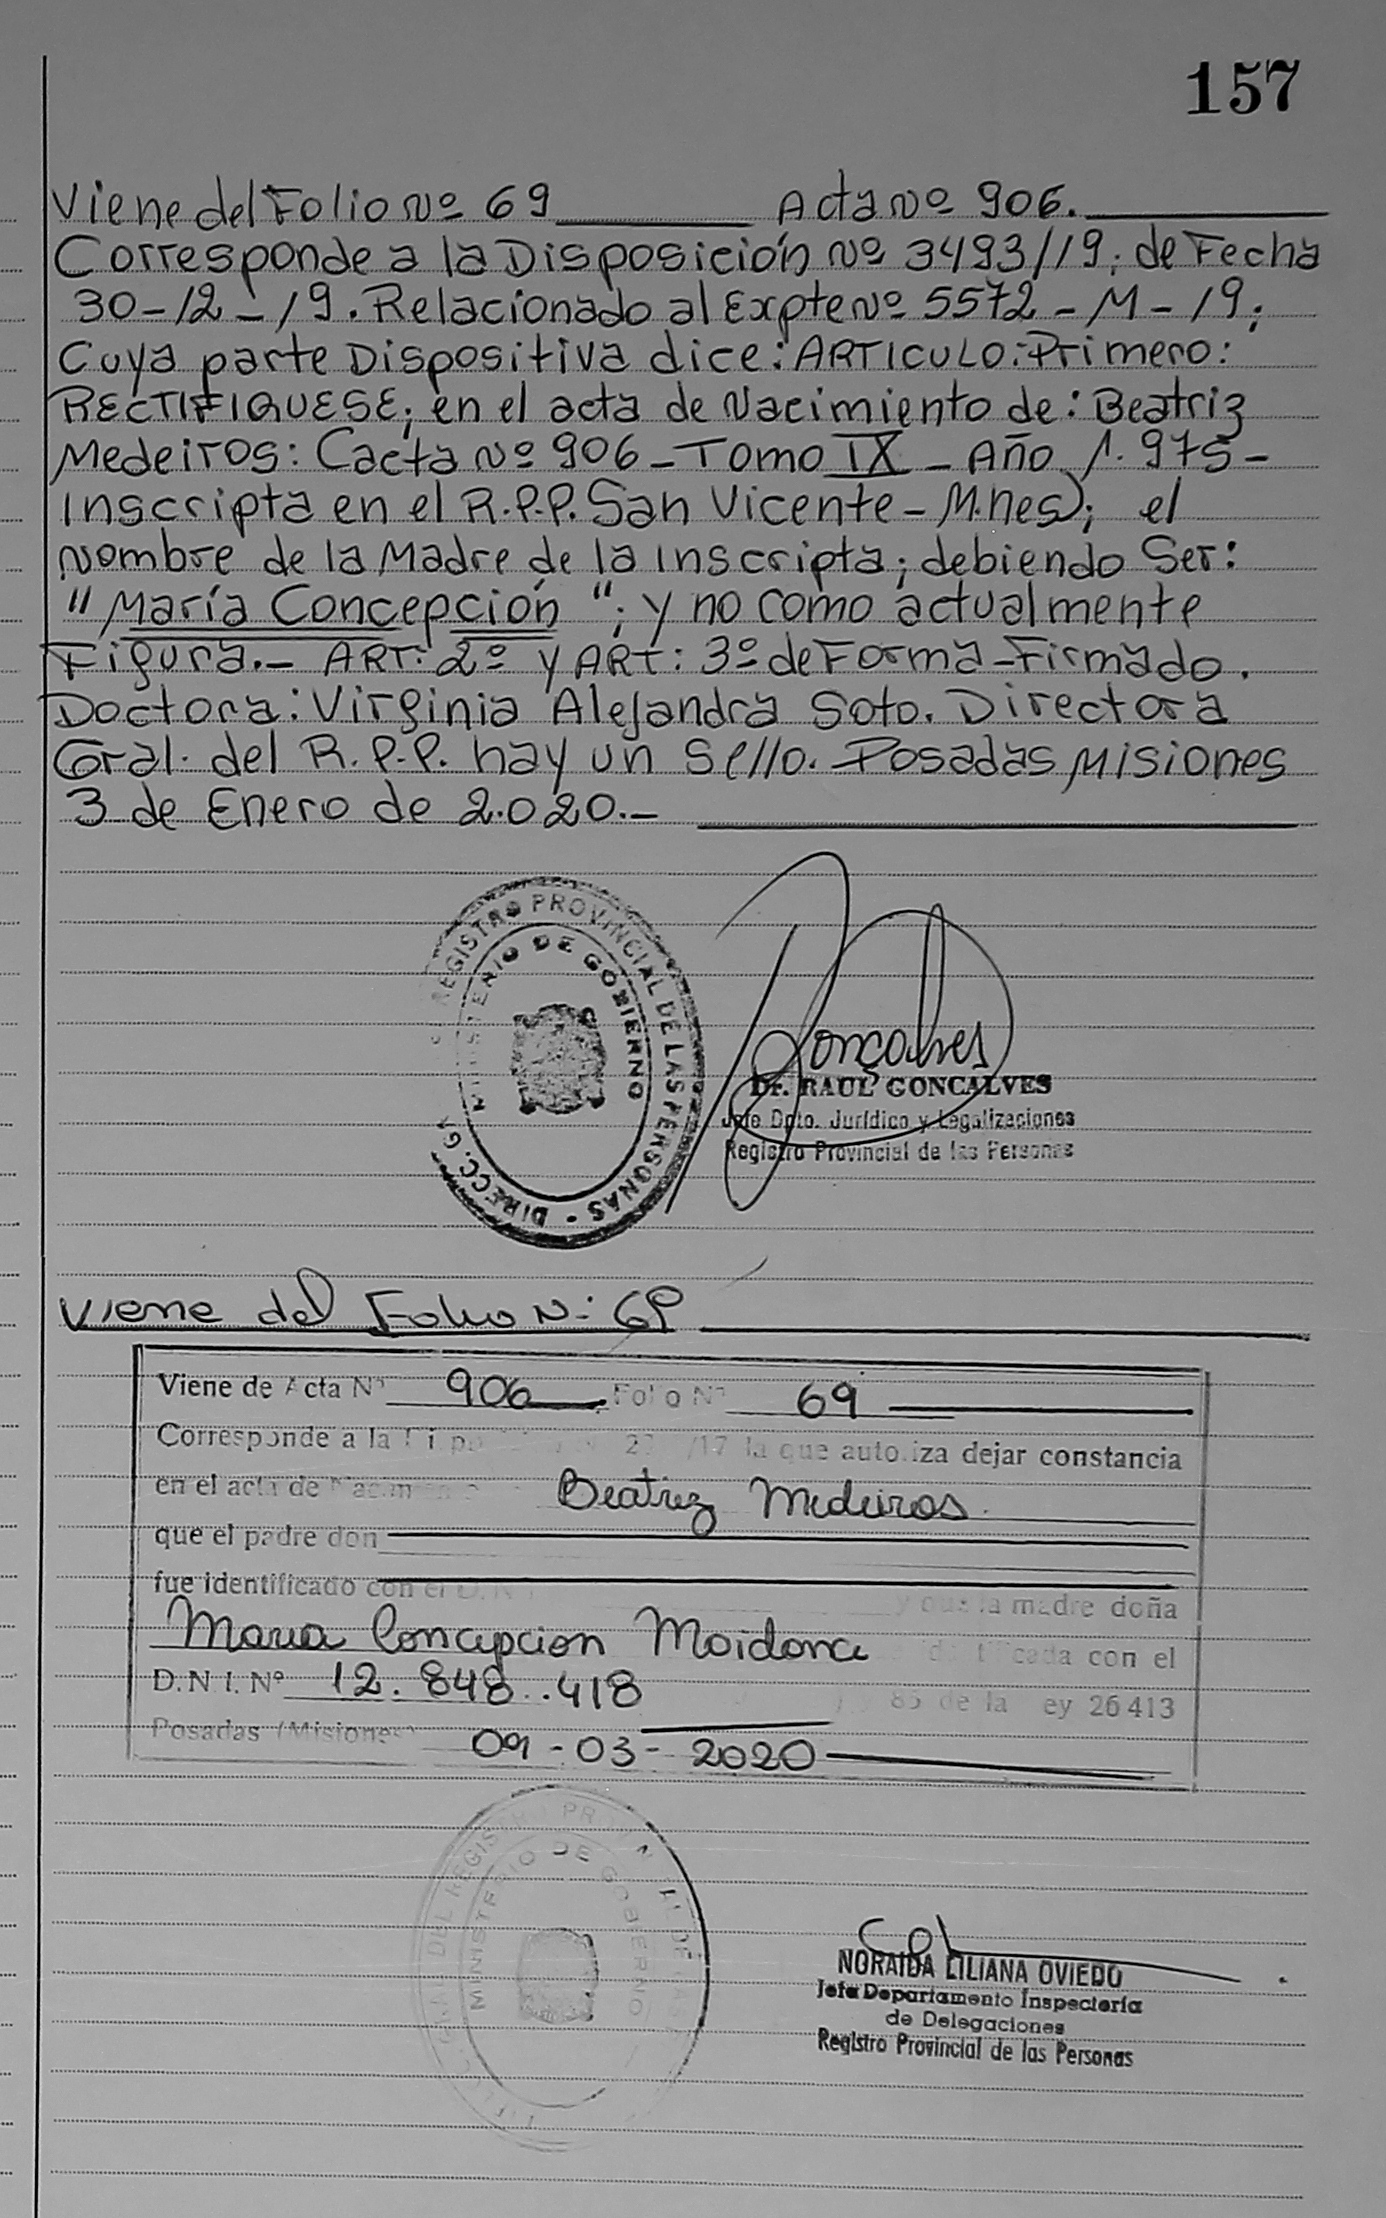 157
Viene del Folio Nº 69 Acta Nº 906.
Corresponde a la Disposición Nº 3493/19; de Fecha
30-12-19. Relacionado al Expte Nº 5572-M-19;
Cuya parte Dispositiva dice: ARTICULO: Primero:
RECTIFIQUESE; en el acta de Nacimiento de: Beatriz
Medeiros: Cacta Nº 906-Tomo IX - Año 1.975-
Inscripta en el R.P.P. San Vicente-M.nes); el
Nombre de la Madre de la inscripta; debiendo Ser:
"María Concepción"; y no como actualmente
Figura.- ART: 2º y ART: 3º de Forma-Firmado.
Doctora: Virginia Alejandra Soto. Directora
Gral. del R.P.P. hay un Sello. Posadas Misiones
3 de Enero de 2.020.-
REGISTRO PROVINCIAL DE LAS PERSONAS - DIRECC. G
MINISTERIO DE GOBIERNO
Goncalves
Dr. RAUL GONCALVES
Jefe Dpto. Jurídico y Legalizaciones
Registro Provincial de las Personas
Viene del Folio N: 69
Viene de Acta Nº 906 Folio Nº 69
Corresponde a la /17 la que autoriza dejar constancia
en el acta de Beatriz Medeiros
que el padre don
fue identificado con el D.N y que la madre doña
Maria Concepcion Moidona con el
D.N.I. Nº 12.848..418 85 de la ey 26 413
Posadas (Misiones) 09-03-2020
DEL REGIS
MINISTERIO DE GOBIERNO
NORAIDA LILIANA OVIEDO
Jefa Departamento Inspectoría
de Delegaciones
Registro Provincial de las Personas